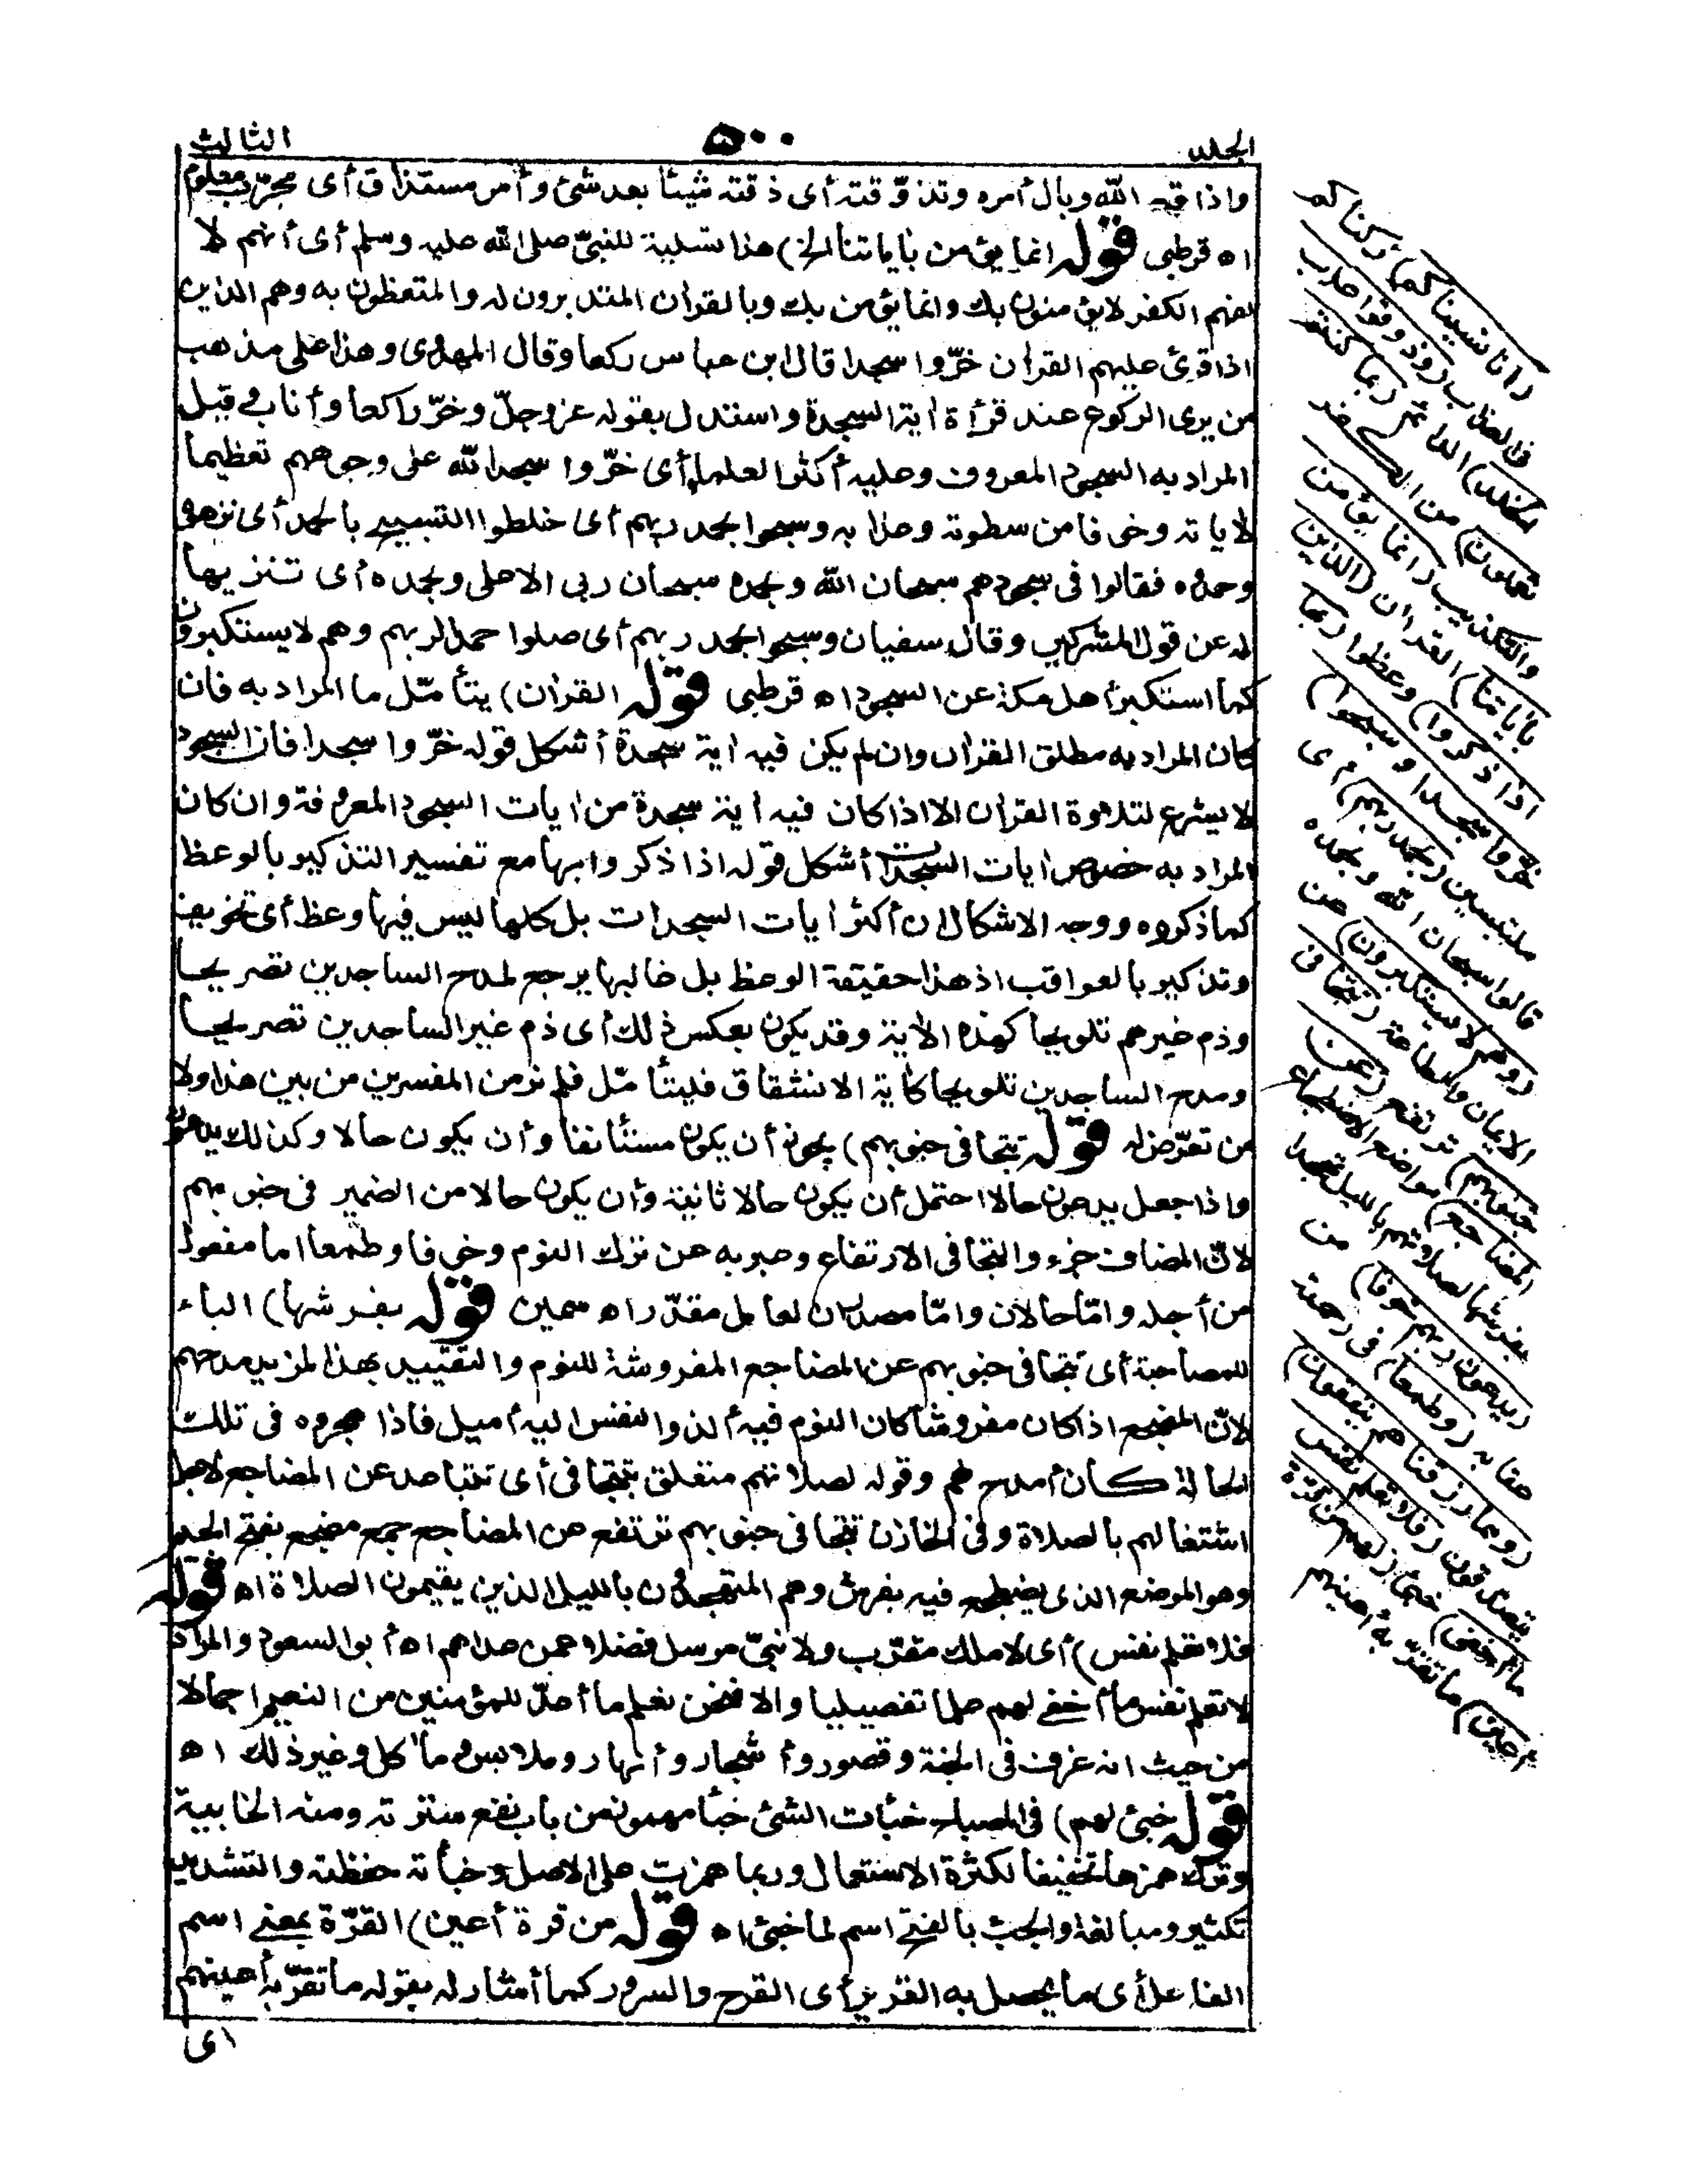 الجلد ٥٠٠ الثالث
واذاقه الله وبال أمره وتذوّقته أى ذقته شيئا بعد شئ وأمر مستذاق أى مجرّب معلوم
اه قرطبى قوله انما يؤمن بأياتنا الخ) هذا تسلية للنبىّ صلى الله عليه وسلم أى أنهم لا
لفهم الكفر لا يؤمنون بك وانما يؤمن بك وبالقرأن المتدبرون له والمتعظون به وهم الذين
اذا قرئ عليهم القرأن خرّوا سجدا قال ابن عباس ركعا وقال المهدوى وهذا على مذهب
من يرى الركوع عند قرأة أية السجدة واستدل بقوله عز وجلّ وخرّ راكعا وأناب وقيل
المراد به السجود المعروف وعليه أكثر العلماء أى خرّوا سجدا لله على وجوههم تعظيما
لأياته وخوفا من سطوته وعذابه وسبحوا بحمد ربهم أى خلطوا التسبيح بالحمد أى نزهوه
وحمدوه فقالوا فى سجودهم سبحان الله وبحمده سبحان ربى الاعلى وبحمده أى تنزيها
له عن قول المشركين وقال سفيان وسبحوا بحمد ربهم أى صلوا حمدا لربهم وهم لا يستكبرون
كما استكبر أهل مكة عن السجود اه قرطبى قوله القرأن) يتأمّل ما المراد به فان
كان المراد به مطلق القرأن وان لم يكن فيه أية سجدة أشكل قوله خرّوا سجدا فان السجود
لا يشرع لتلاوة القرأن الا اذا كان فيه أية سجدة من أيات السجود المعروفة وان كان
المراد به خصوص أيات السجدات أشكل قوله اذا ذكروا بها مع تفسير التذكير بالوعظ
كما ذكروه ووجه الاشكال ان أكثر أيات السجدات بل كلها ليس فيها وعظ أى تخويف
وتذكير بالعواقب اذ هذا حقيقة الوعظ بل غالبها يرجع لمدح الساجدين تصريحا
وذم غيرهم تلويحا كهذه الأية وقد يكون بعكس ذلك أى ذم غير الساجدين تصريحا
ومدح الساجدين تلويحا كأية الانشقاق فليتأمّل فلم نر من المفسرين من بين هذا ولا
من تعرّض له قوله تتجافى جنوبهم) يجوز أن يكون مستأنفا وأن يكون حالا وكذلك يدعون
واذا جعل يدعون حالا احتمل أن يكون حالا ثانية وأن يكون حالا من الضمير فى جنوبهم
لانّ المضاف جزء والتجافى الارتفاع وعبر به عن ترك النوم وخوفا وطمعا اما مفعول
من أجله وامّا حالان وامّا مصدران لعامل مقدّر اه سمين قوله بفرشها) الباء
للمصاحبة أى تتجافى جنوبهم عن المضاجع المفروشة للنوم والتقييد بهذا لمزيد مدحهم
لانّ المضجع اذا كان مفروشا كان النوم فيه ألذ والنفس اليه أميل فاذا هجروه فى تلك
الحالة كان أمدح لهم وقوله لصلاتهم متعلق بتتجافى أى تتباعد عن المضاجع لاجل
اشتغالهم بالصلاة وفى الخازن تتجافى جنوبهم ترتفع عن المضاجع جمع مضجع بفتح الجيم
وهو الموضع الذى يضطجع فيه بفرش وهم المتهجدون بالليل الذين يقيمون الصلاة اه قوله
فلا تعلم نفس) أى لا ملك مقرّب ولا نبىّ مرسل فضلا عمن عداهم اه أبو السعود والمراد
لا تعلم نفس ما أخفى لهم علما تفصيليا والا فنحن نعلم ما أعدّ للمؤمنين من النعيم اجمالا
من حيث انه غرف فى الجنة وقصور وأشجار وأنهار وملابس ومأكل وغير ذلك اه
قوله خبئ لهم) فى المصباح خبأت الشئ خبأ مهموز من باب نفع سترته ومنه الخابية
وترك همزها تخفيفا لكثرة الاستعمال وربما همزت على الاصل وخبأته حفظته والتشديد
تكثير ومبالغة والخبء بالفتح اسم لما خبئ اه قوله من قرة أعين) القرّة بمعنى اسم
الفاعل أى ما يحصل به القرير أى الفرح والسرور كما أشار له بقوله ما تقرّ به أعينهم
اى
(انا نسيناكم) تركناكم
فى العذاب (وذوقوا عذاب
الخلد) الدائم (بما كنتم
تعملون) من الكفر
والتكذيب (انما يؤمن
بأياتنا) القرأن (الذين
اذا ذكروا) وعظوا (بها
خرّوا سجدا وسبحوا)
ملتبسين (بحمد ربهم) أى
قالوا سبحان الله وبحمده
(وهم لا يستكبرون) عن
الايمان والطاعة (تتجافى
جنوبهم) ترتفع (عن
المضاجع) مواضع الاضطجاع
بفرشها لصلاتهم بالليل تهجدا
(يدعون ربهم خوفا) من
عقابه (وطمعا) فى رحمته
(ومما رزقناهم ينفقون)
يتصدقون (فلا تعلم نفس
ما أخفى) خبئ (لهم من قرة
أعين) ما تقرّ به أعينهم